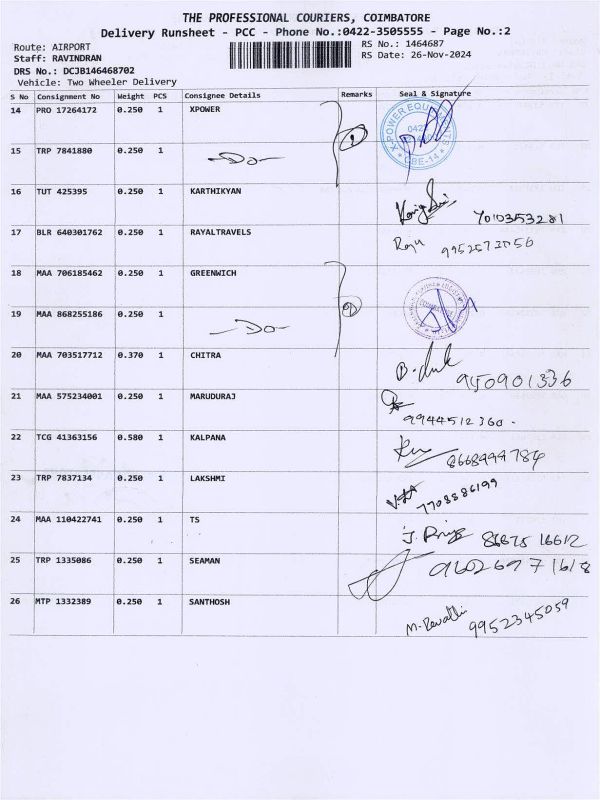 THE PROFESSIONAL COURIERS, COIMBATORE
Delivery Runsheet - PCC - Phone No.:0422-3505555 - Page No.:2
Route: AIRPORT
Staff: RAVINDRAN
DRS No.: DCJB146468702
Vehicle: Two Wheeler Delivery
RS No.: 1464687
RS Date: 26-Nov-2024
S No Consignment No Weight PCS Consignee Details Remarks Seal & Signature
14 PRO 17264172 0.250 1 XPOWER
X-POWER EQUIPMENTS
0422
CBE-14
15 TRP 7841880 0.250 1 -Do-
16 TUT 425395 0.250 1 KARTHIKYAN 7010353281
17 BLR 640301762 0.250 1 RAYALTRAVELS Raju 9952573056
18 MAA 706185462 0.250 1 GREENWICH
19 MAA 868255186 0.250 1 -Do-
20 MAA 703517712 0.370 1 CHITRA 950901336
21 MAA 575234001 0.250 1 MARUDURAJ 9944512360.
22 TCG 41363156 0.580 1 KALPANA
23 TRP 7837134 0.250 1 LAKSHMI 7708886199
24 MAA 110422741 0.250 1 TS 86875 16612
25 TRP 1335086 0.250 1 SEAMAN 9626971618
26 MTP 1332389 0.250 1 SANTHOSH M. Revathi 9952345059